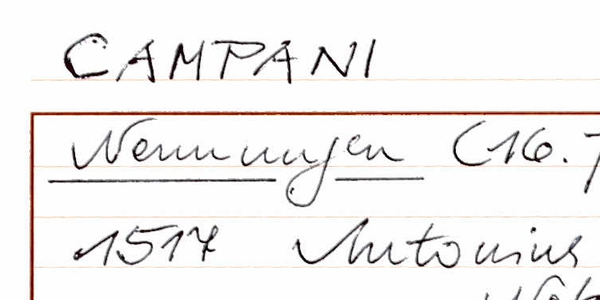 CAMPANI
Nennungen (16.
1517 Antonius